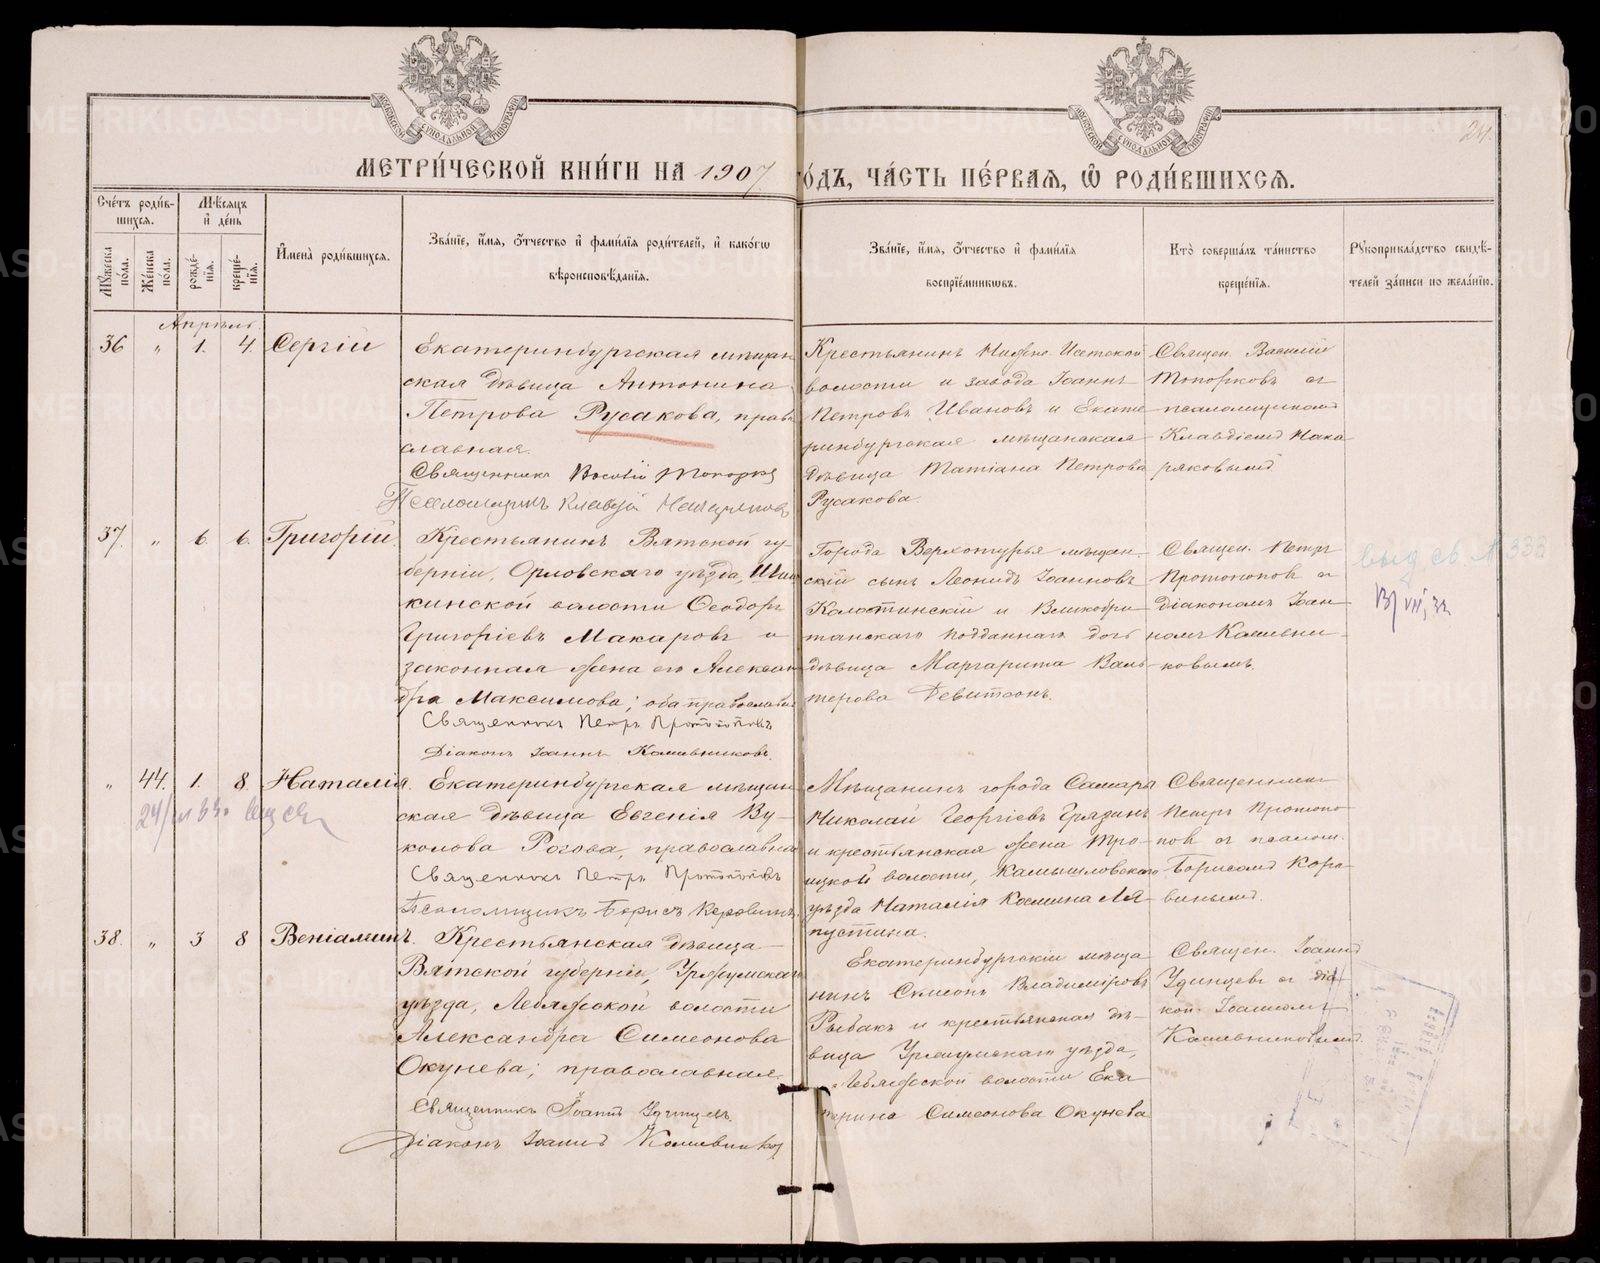 МЕТРИ́ЧЕСКОЙ КНИ́ГИ НА 1907 ГО́ДЪ, ЧА́СТЬ ПЕ́РВАЯ, Ѡ РОДИ́ВШИХСЯ.
24.
Сче́тъ роди́в-
шихся.
Мѣ́сяцъ
и де́нь
Мꙋ́жеска по́ла.
Же́нска по́ла.
рожде́-
нїя.
креще́-
нїя.
Имена̀ роди́вшихся.
Зва́нїе, и́мя, ѻ́тчество и фами́лїя роди́телей, и како́гѡ
вѣроисповѣ́данїя.
Зва́нїе, и́мя, ѻ́тчество и фами́лїя
воспрїе́мникѡвъ.
Кто̀ соверша́лъ та́инство
креще́нїя.
Рꙋкоприкла́дство свидѣ́-
телей за́писи по жела́нїю.
Апрѣль
36 " 1. 4. Сергій
Екатеринбургская мѣщан
ская дѣвица Антонина
Петрова Русакова, право
славная.
Священникъ Василій Топорков
Псаломщикъ Клавдій
Крестьянинъ Нижне Исетской
волости и завода Іоаннъ
Петровъ Ивановъ и Екате
ринбургская мѣщанская
дѣвица Татіана Петрова
Русакова.
Священ. Василій
Топорковъ съ
псаломщикомъ
Клавдіемъ
37. " 6. 6. Григорій.
Крестьянинъ Вятской гу
берніи, Орловскаго уѣзда,
кинской волости Ѳеодоръ
Григоріевъ Макаровъ и
законная жена его Алексан
дра Максимова; оба православн
Священникъ Петръ Протопоповъ
Діаконъ Іоаннъ Кашевниковъ.
Города Верхотурья мѣщан-
скій сынъ Леонидъ Іоанновъ
Калотинскій и Великобри
танскаго подданнаго дочь
дѣвица Маргарита Валь
терова Девитсонъ.
Священ. Петръ
Протопоповъ съ
діакономъ Іоан-
номъ Кашевни-
ковымъ.
выд св. № 333
" 44. 1. 8. Наталія.
Екатеринбургская мѣщан
ская дѣвица Евгенія Ву-
колова Рогова, православна
Священникъ Петръ Протопоповъ
Псаломщикъ Борисъ Коровинъ.
Мѣщанинъ города Самары
Николай Георгіевъ Грязинъ
и крестьянская жена Тро-
ицкой волости, Камышловскаго
уѣзда Наталія Косьмина Ля-
пустина.
Священникъ
Петръ Протопо
повъ съ псалом.
Борисомъ Коро-
винымъ.
38. " 3 8 Веніаминъ.
Крестьянская дѣвица
Вятской губерніи, Уржумскаго
уѣзда, Лебяжской волости
Александра Симеонова
Окунева; православная.
Священникъ Іоаннъ Удинцевъ.
Діаконъ Іоаннъ Кашевников
Екатеринбургскій мѣща
нинъ Симеонъ Владиміровъ
Рыбакъ и крестьянская дѣ-
вица Уржумскаго уѣзда,
Лебяжской волости Ека
терина Симеонова Окунева
Священ. Іоаннъ
Удинцевъ съ діа
кон. Іоанномъ
Кашевниковымъ.